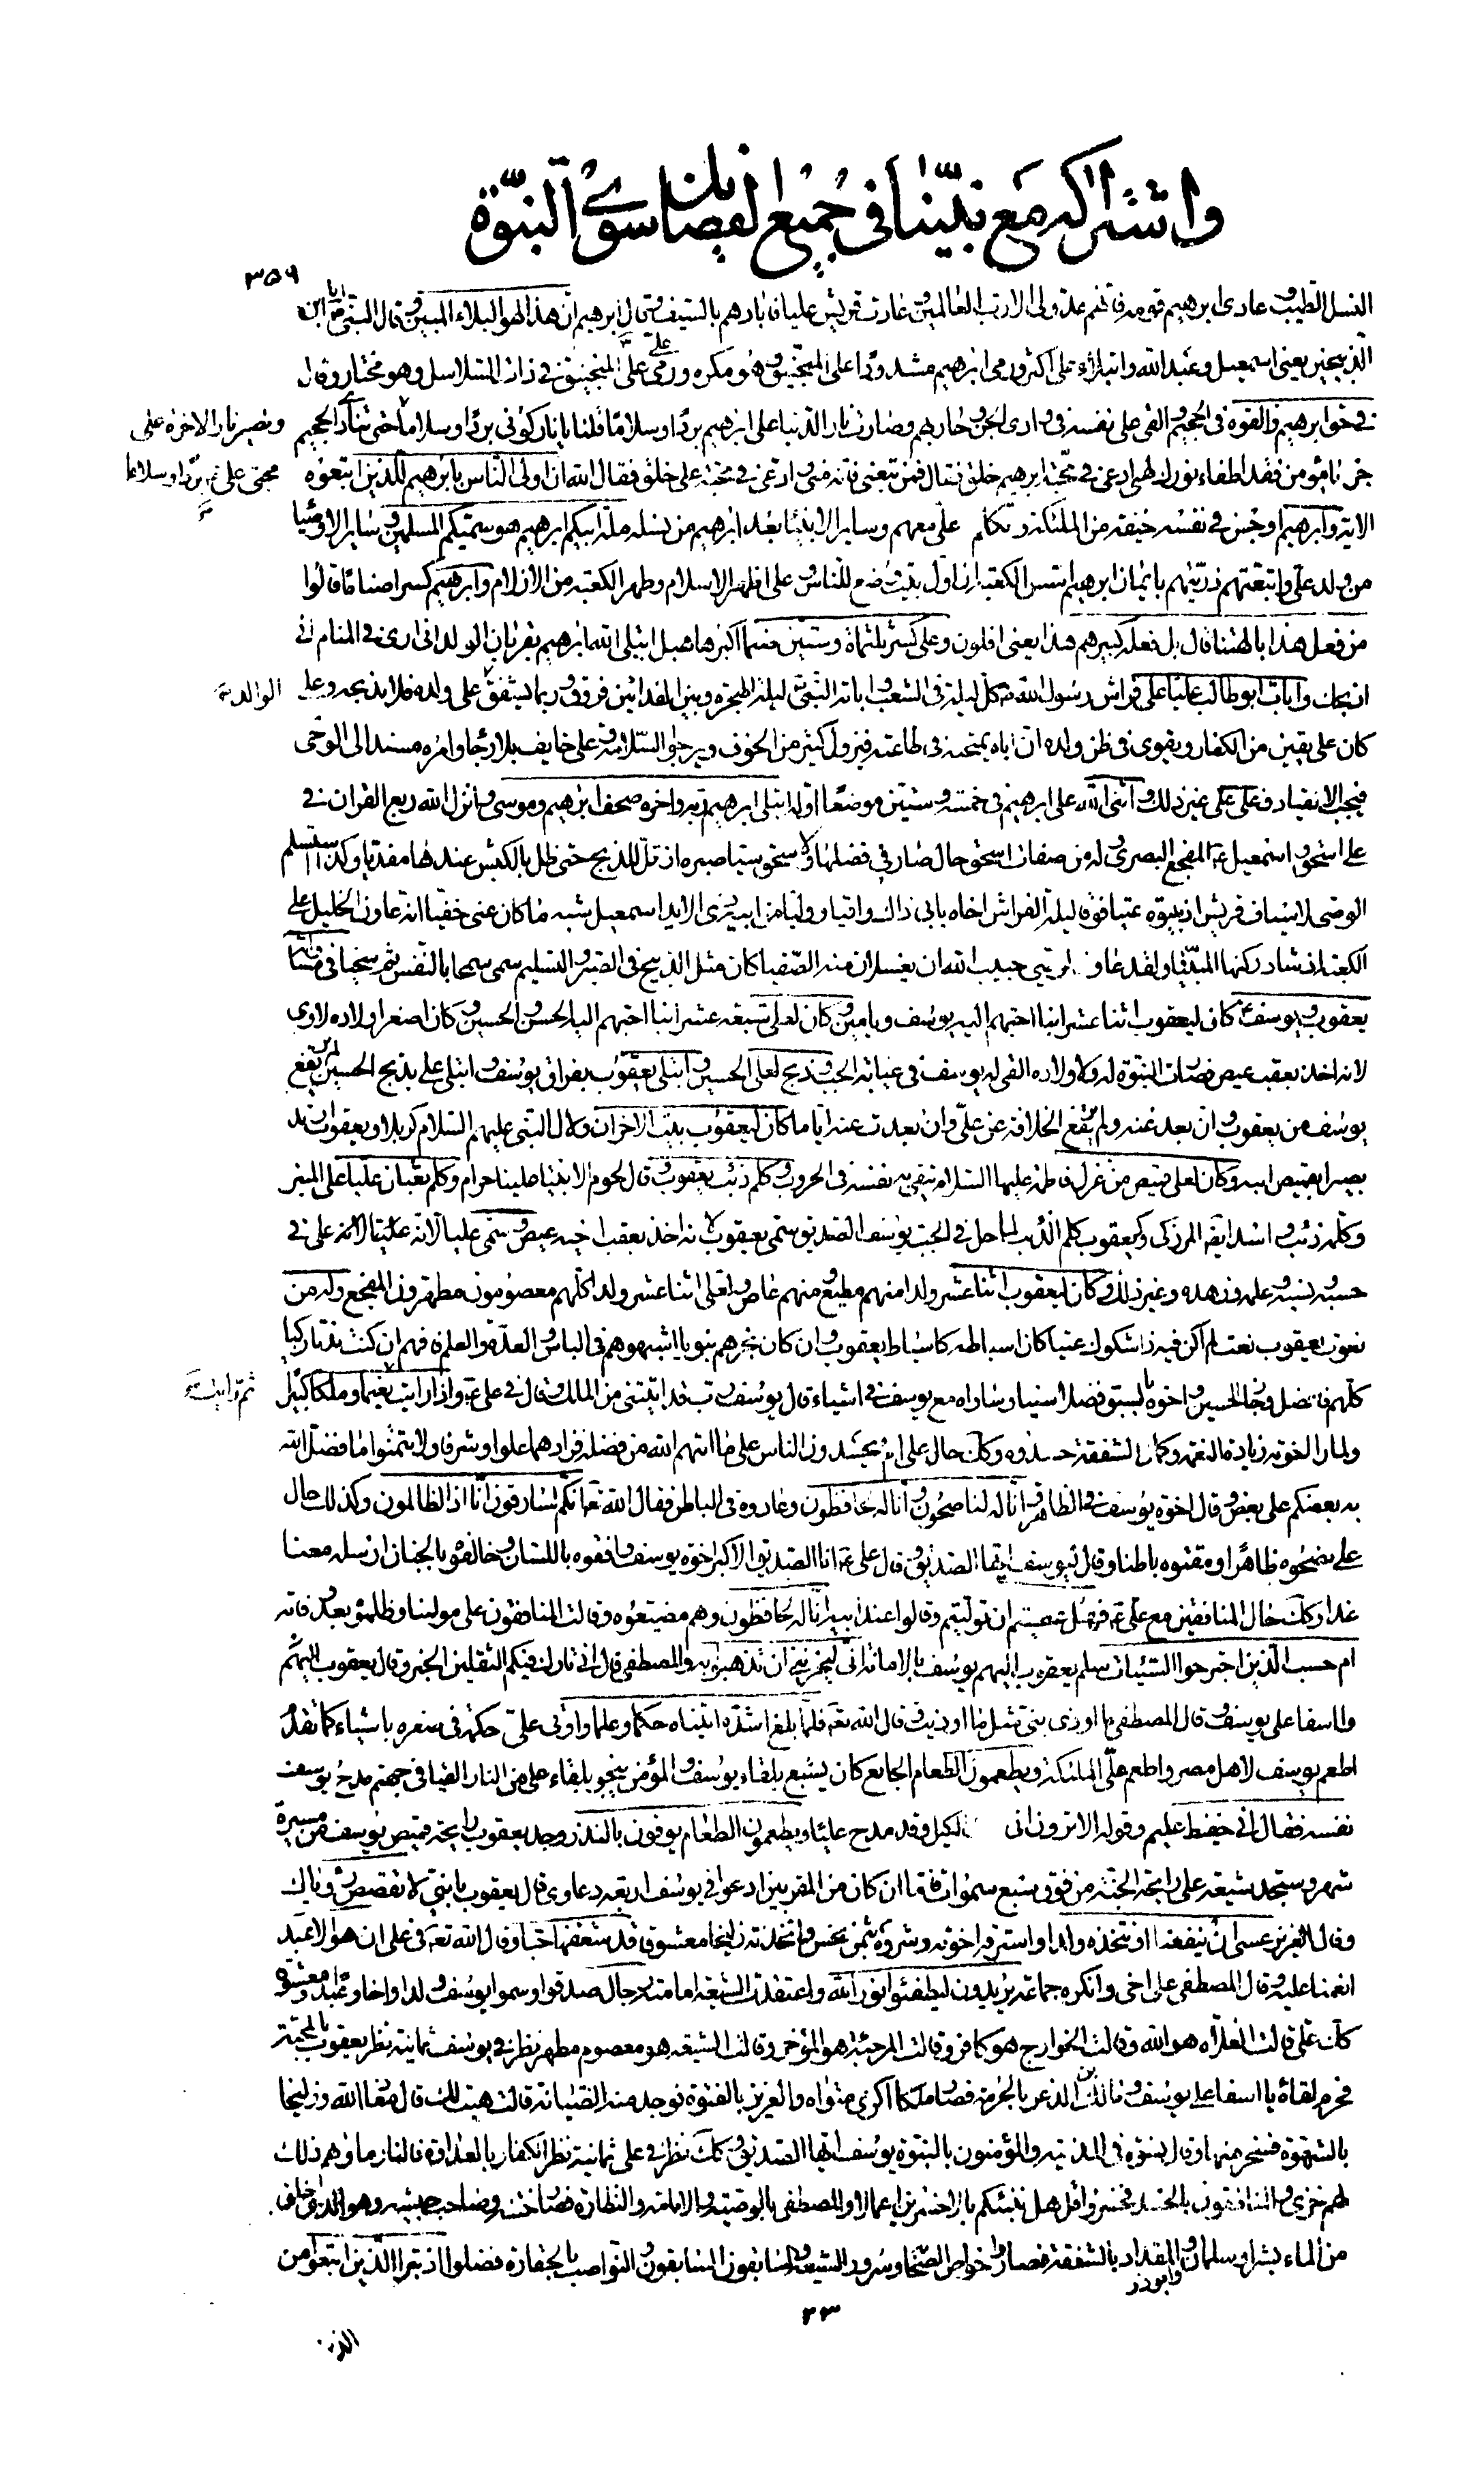 واشتراكه مع نبينا في جميع الفضايل سوى النبوة
٣٥٩
النسل الطيب وعادى ابرهيم قومه فانهم عدو لى الا رب العالمين وعادت قريش عليا فابادهم بالسيف وقال ابرهيم ان هذا لهو البلاء المبين وقال النبي انا ابن
الذبيحين يعنى اسمعيل وعبد الله وابتلاء على اكثر ورمى ابرهيم مشدودا على المنجنيق وهو مكره ورمى على على المنجنيق في ذات السلاسل وهو مختار وقال
في حق ابرهيم فالقوه في الجحيم والقى على نفسه في وادى الجن وحاربهم وصارت نار الدنيا على ابرهيم بردا وسلاما قلنا يا نار كونى بردا وسلاما حتى تنادى الجحيم
وتصير نار الاخرة على
جز يا مؤمن فقد اطفاء نورك لهبى ادعى في محبة ابرهيم خلق فقال فمن تبعنى فانه منى وادعى في محبة على خلق فقال الله ان اولى الناس بابرهيم للذين اتبعوه
محبى على بردا وسلاما
الاية وابرهيم اوجس في نفسه خيفة من الملئكة وتكلم على معهم وساير الانبيا بعد ابرهيم من نسله ملة ابيكم ابرهيم هو سميكم المسلمين وساير الاوصيا
من ولد على واتبعتهم ذريتهم بايمان ابرهيم اسس الكعبة ان اول بيت وضع للناس وعلى اظهر الاسلام وطهر الكعبة من الازلام وابرهيم كسر اصناما قالوا
من فعل هذا بالهتنا قال بل فعله كبيرهم هذا يعنى افلون وعلى كسر ثلثماة وستين صنما اكبرها هبل ابتلى الله ابرهيم بقربان الولد انى ارى في المنام انى
اذبحك وابات ابوطالب عليا على فراش رسول الله كل ليلة في الشعب واباته النبى ليلة الهجرة وبين الفدائين فرق وربما يشفق على ولده فلا يذبحه وعلى
الوالد
كان على يقين من الكفار ويقوى في ظن ولده ان اباه يمتحنه في طاعته فيزول كثير من الخوف ويرجو السلامة وعلى خايف بلا رجا وامره مسند الى الوحى
فيجب الانقياد وعلى على غير ذلك واثنى الله على ابرهيم في خمسة وستين موضعا اوله ابتلى ابرهيم ربه واخره صحف ابرهيم وموسى وانزل الله ربع القران في
على اسحق واسمعيل المفجع البصرى وله من صفات اسحق حال صار في فضلها لاسحق سيا صبره اذ تل للذبح حتى ظل بالكبش عندها مفديا وكذا استسلم
الوصى لاسياف قريش اذ بيتوه عشيا فوقا ليلة الفراش اخاه بابى ذاك واقيا ووليا من ابيه ذى الايد اسمعيل شبه ما كان عنى خفيا انه عاون الخليل على
الكعبة اذ شاد ركنها المبنيا ولقد عاون الوصى حبيب الله ان يغسلان منه الصفيا كان مثل الذبيح في الصبر والتسليم سمى سمحا بالنفس ثم سخيا في مساواته
يعقوب ويوسف كان ليعقوب اثنا عشر ابنا احبهم اليه يوسف ويامين وكان لعلى سبعة عشر ابنا احبهم اليه الحسن والحسين وكان اصغر اولاده لاوى
لانه اخذ بعقب عيص فصارت النبوة له ولاولاده القى له يوسف في غيابة الجب وذبح لعلى الحسين وابتلى يعقوب بفراق يوسف وابتلى على بذبح الحسين لم يقع
يوسف من يعقوب ان بعد عنه ولم تقع الخلافة عن على وان بعدت عنه اياما كان ليعقوب بيت الاحزان ولال النبى عليهم السلام كربلا ويعقوب ارتد
بصيرا بقميص ابنه وكان لعلى قميص من غزل فاطمة عليها السلام يتقى به نفسه في الحروب وكلم ذئب يعقوب وقال لحوم الانبيا علينا حرام وكلم ثعبان عليا على المنبر
وكلمه ذئب واسد ايضا المرزكى وكيعقوب كلم الذئب لما حل في الجب يوسف الصديق وسمى يعقوب لانه اخذ بعقب اخيه عيص وسمى عليا لانه علا في
حسبه ونسبه وعلمه وزهده وغير ذلك وكان ليعقوب اثنا عشر ولدا منهم مطيع ومنهم عاص ولعلى اثنا عشر ولدا كلهم معصومون مطهرون المفجع وله من
نعوت يعقوب نعت لم اكن فيه ذا شكوك عتيا كان اسباطه كاسباط يعقوب وان كان نجرهم نبويا اشبهوهم في الباس والعدة والعلم فافهم ان كنت ندبا زكيا
كلهم فاضل وحاز الحسين واخوه بالسبق فضلا سنيا ومساواه مع يوسف في اشياء قال يوسف رب قد اتيتنى من الملك وقال في على واذا رايت نعيما وملكا كبيرا
ثم رايت
ولما راى اخوته زيادة النعمة وكمال الشفقة حسدوه وكان حال على ام يحسدون الناس على ما اتيهم الله من فضله فزادهما علوا وشرفا ولا تتمنوا ما فضل الله
به بعضكم على بعض وقال اخوة يوسف في الظاهر انا له لناصحون وانا له لحافظون وعادوه في الباطن فقال الله تعالى انكم لسارقون انا اذا لظالمون وكذلك حال
على نصحوه ظاهرا ومقتوه باطنا وقال ليوسف ايها الصديق وقال على انا الصديق الاكبر اخوة يوسف وافقوه باللسان وخالفوه بالجنان ارسله معنا
غدا وكان حال المنافقين مع على فهل عسيتم ان توليتم وقالوا عند ابيه انا له لحافظون وهم مضيعوه وقالت المنافقون على مولينا وظلموه بعد وفاته
ام حسب الذين اجترحوا السيئات سلم يعقوب اليهم يوسف بالامانة انى ليحزننى ان تذهبوا به والمصطفى قال انى تارك فيكم الثقلين الخبر وقال يعقوب
وااسفا على يوسف وقال المصطفى ما اوذى نبى مثل ما اوذيت وقال الله تعالى فلما بلغ اشده اتيناه حكما وعلما واوتى على حكمة في صغره باشياء كما تقدم
اطعم يوسف لاهل مصر واطعم على الملئكة ويطعمون الطعام الجائع كان يشبع بلقاء يوسف والمؤمن ينجو بلقاء على من النار القيا في جهنم مدح يوسف
نفسه فقال انى حفيظ عليم وقوله الا ترون انى الكيل وقد مدح عليا ويطعمون الطعام يوفون بالنذر وجد يعقوب رايحة قميص يوسف من مسيرة
شهر وستجد شيعة على رايحة الجنة من فوق سبع سموات فاما ان كان من المقربين ادعوا في يوسف اربعة دعاوى قال يعقوب يا بنى لا تقصص رؤياك
وقال العزيز عسى ان ينفعنا او نتخذه ولدا واسترقه اخوته وشروه بثمن بخس واتخذته زليخا معشوقا قد شغفها حبا وقال الله تعالى في على ان هو الا عبد
انعمنا عليه وقال المصطفى على اخى وانكره جماعة يريدون ليطفئوا نور الله واعتقدت الشيعة امامته رجال صدقوا وسموا يوسف ولدا واخا وعبدا ومعشوقا
كان على قالت الغلاة هو الله وقالت الخوارج هو كافر وقالت المرجئة هو المؤخر وقالت الشيعة هو معصوم مطهر نظر في يوسف ثمانية نظر يعقوب بالمحبة
فحرم لقاه يا اسفا على يوسف ومالك بن الذعر بالحرمة فصار ملكا اكرمى مثواه والعزيز بالفتوة فوجد منه الصيانة قالت هيت لك قال معاذ الله وزليخا
بالشهوة فسخر منها وقال نسوة في المدينة والمؤمنون بالنبوة يوسف ايها الصديق وكان نظر في على ثمانية نظر الكفار بالعداوة فالنار ماواهم ذلك
لهم خزى والمنافقون بالحسد فخسروا قل هل ننبئكم بالاخسرين اعمالا والمصطفى بالوصية والامامة والنظارة فصار ختنه وصاحب جيشه وهو الذى خلق
من الماء بشرا وسلمان والمقداد وابوذر بالشفقة فصاروا خواص الصحابة وسرور الشيعة السابقون السابقون النواصب بالحقارة فضلوا اذ تبرا الذين اتبعوا من
٣٣
الذين